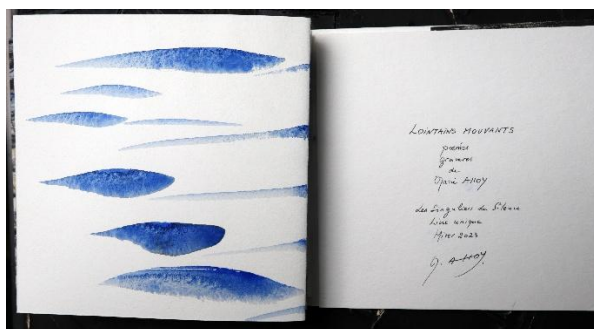 LOINTAINS MOUVANTS
poésies
gravures
de
AHOY
Les Singuliers du Silence
Livre unique
Hiver 2023
AHOY